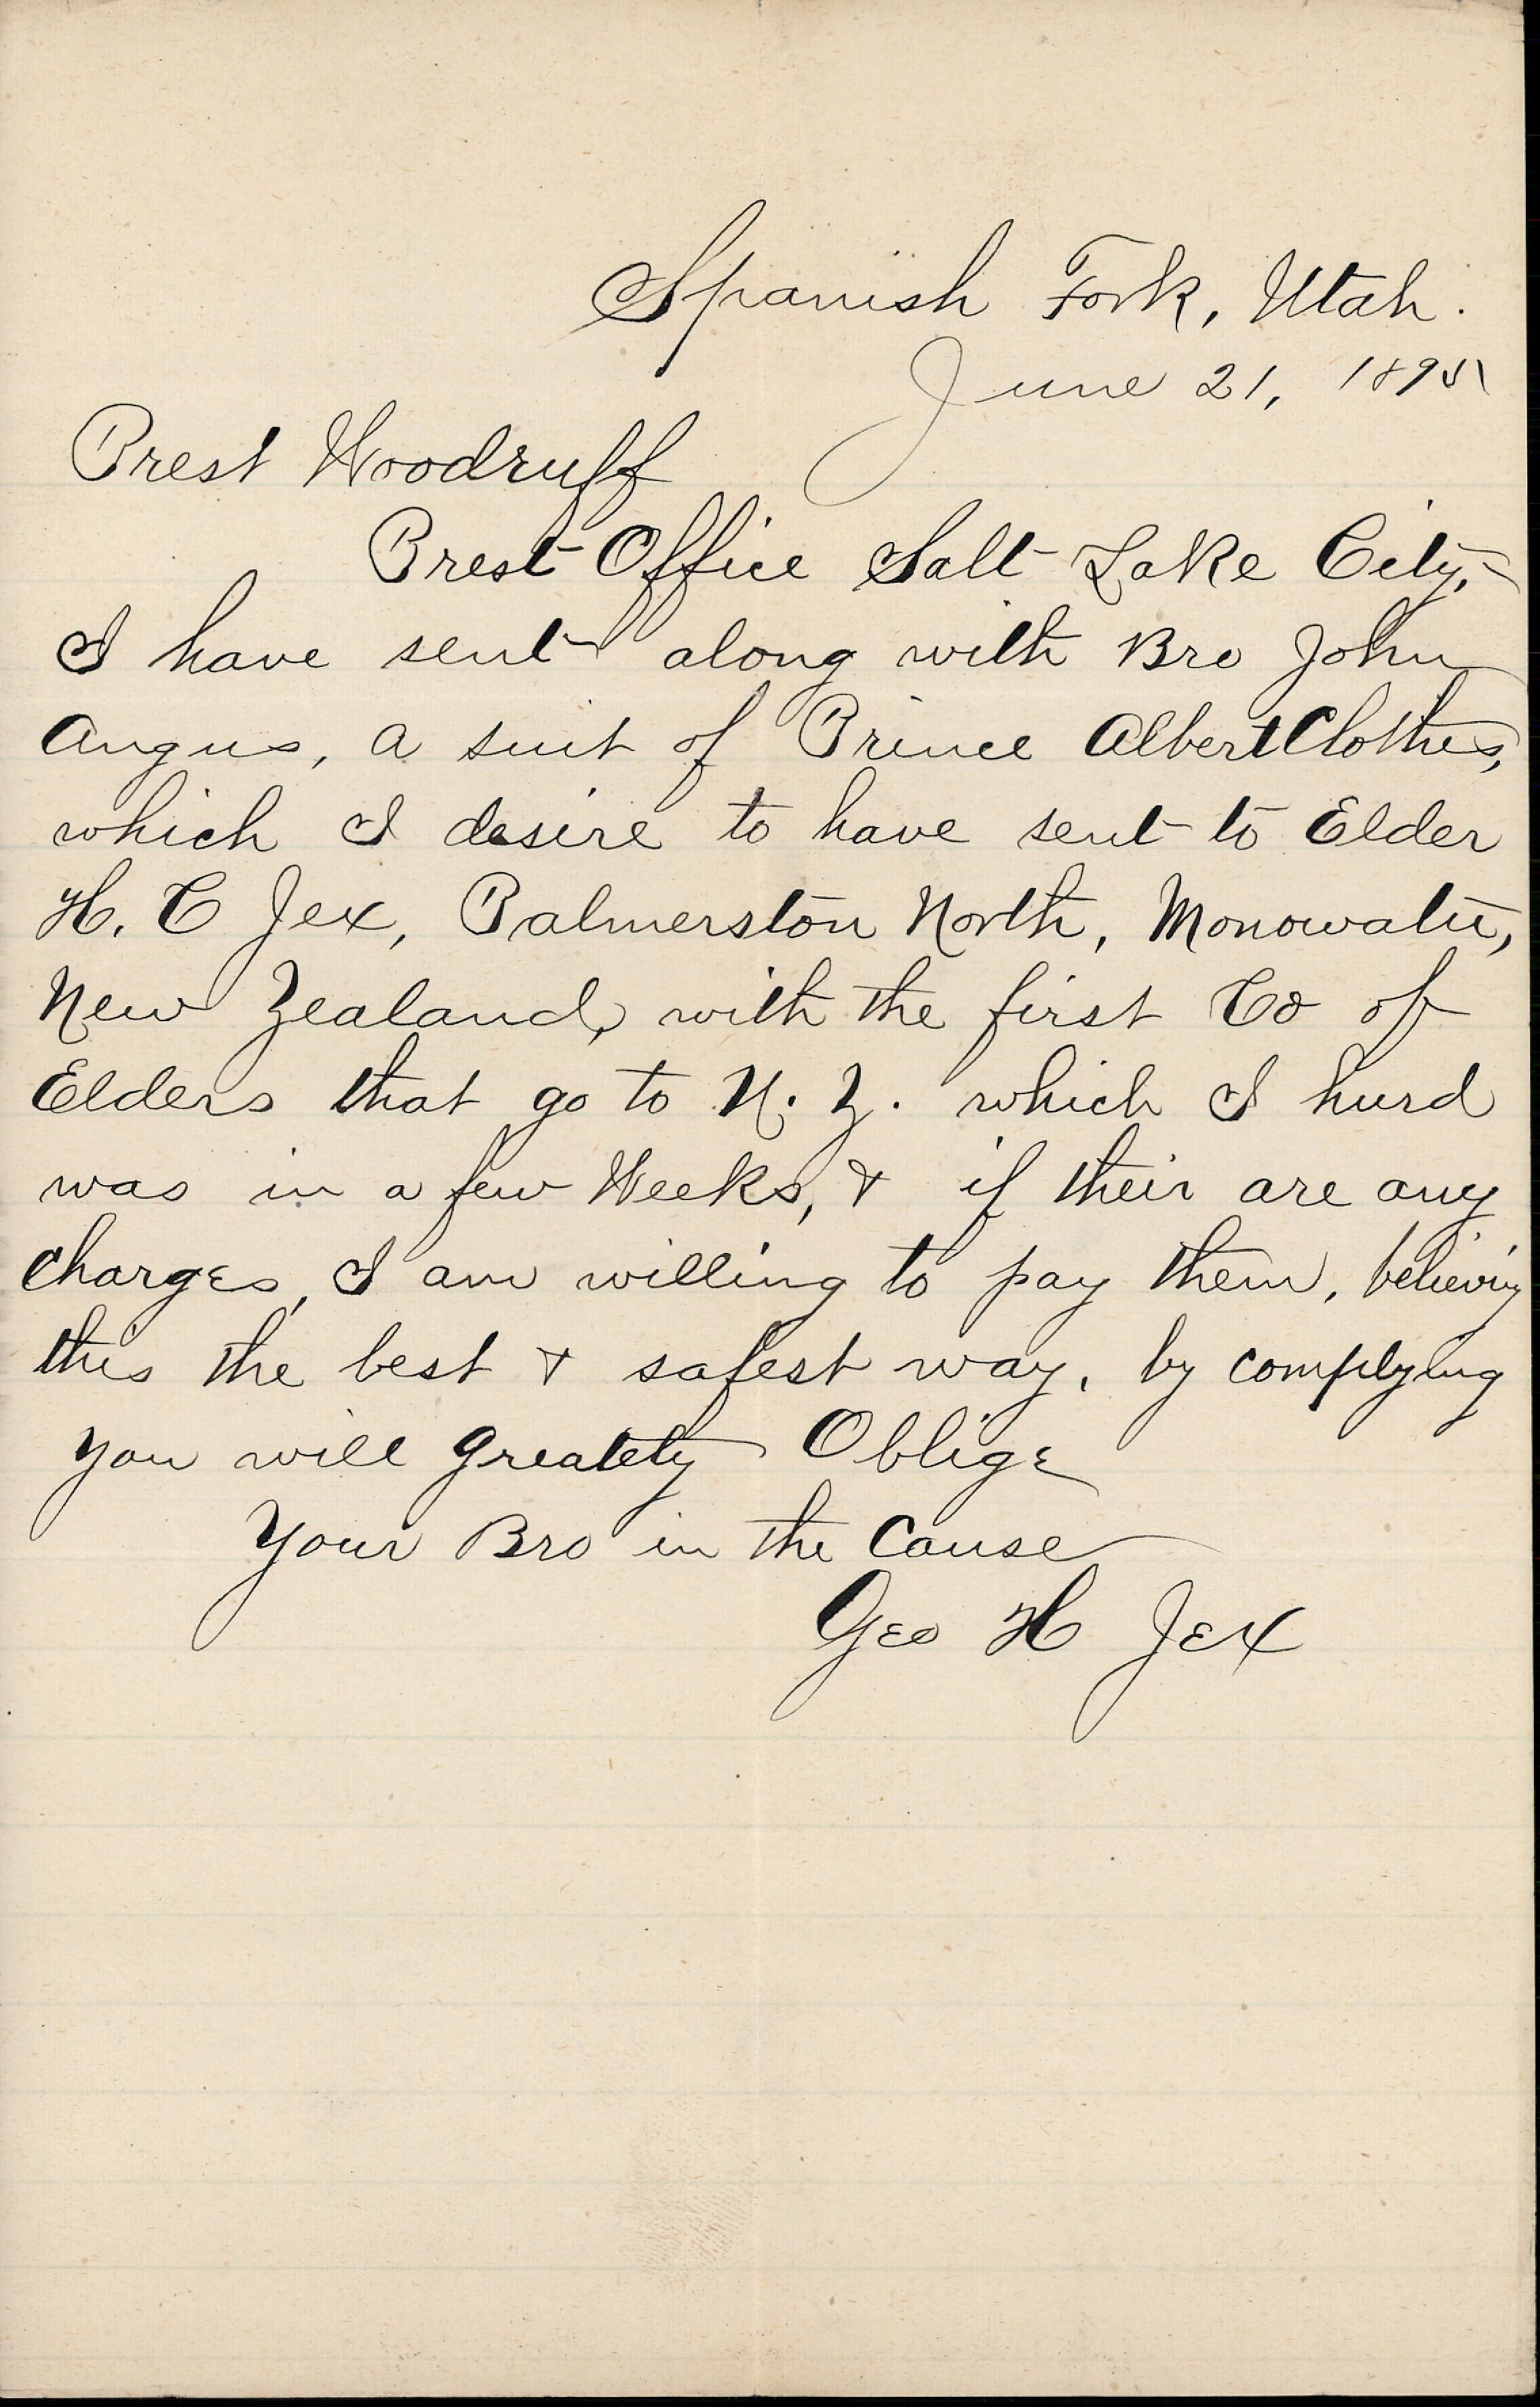 Spanish Fork, Utah.
June 21, 1895
Prest Woodruff
Prest Office Salt Lake City,
I have sent along with Bro John
Angus, a suit of Prince Albert Clothes,
which I desire to have sent to Elder
H. C Jex, Palmerston North, Monowatu,
New Zealand, with the first Co of
Elders that go to N. Z. which I hurd
was in a few Weeks, & if their are any
charges, I am willing to pay them, believing
this the best & safest way, by complying
you will greatly Oblige
Your Bro in the Cause
Geo H Jex